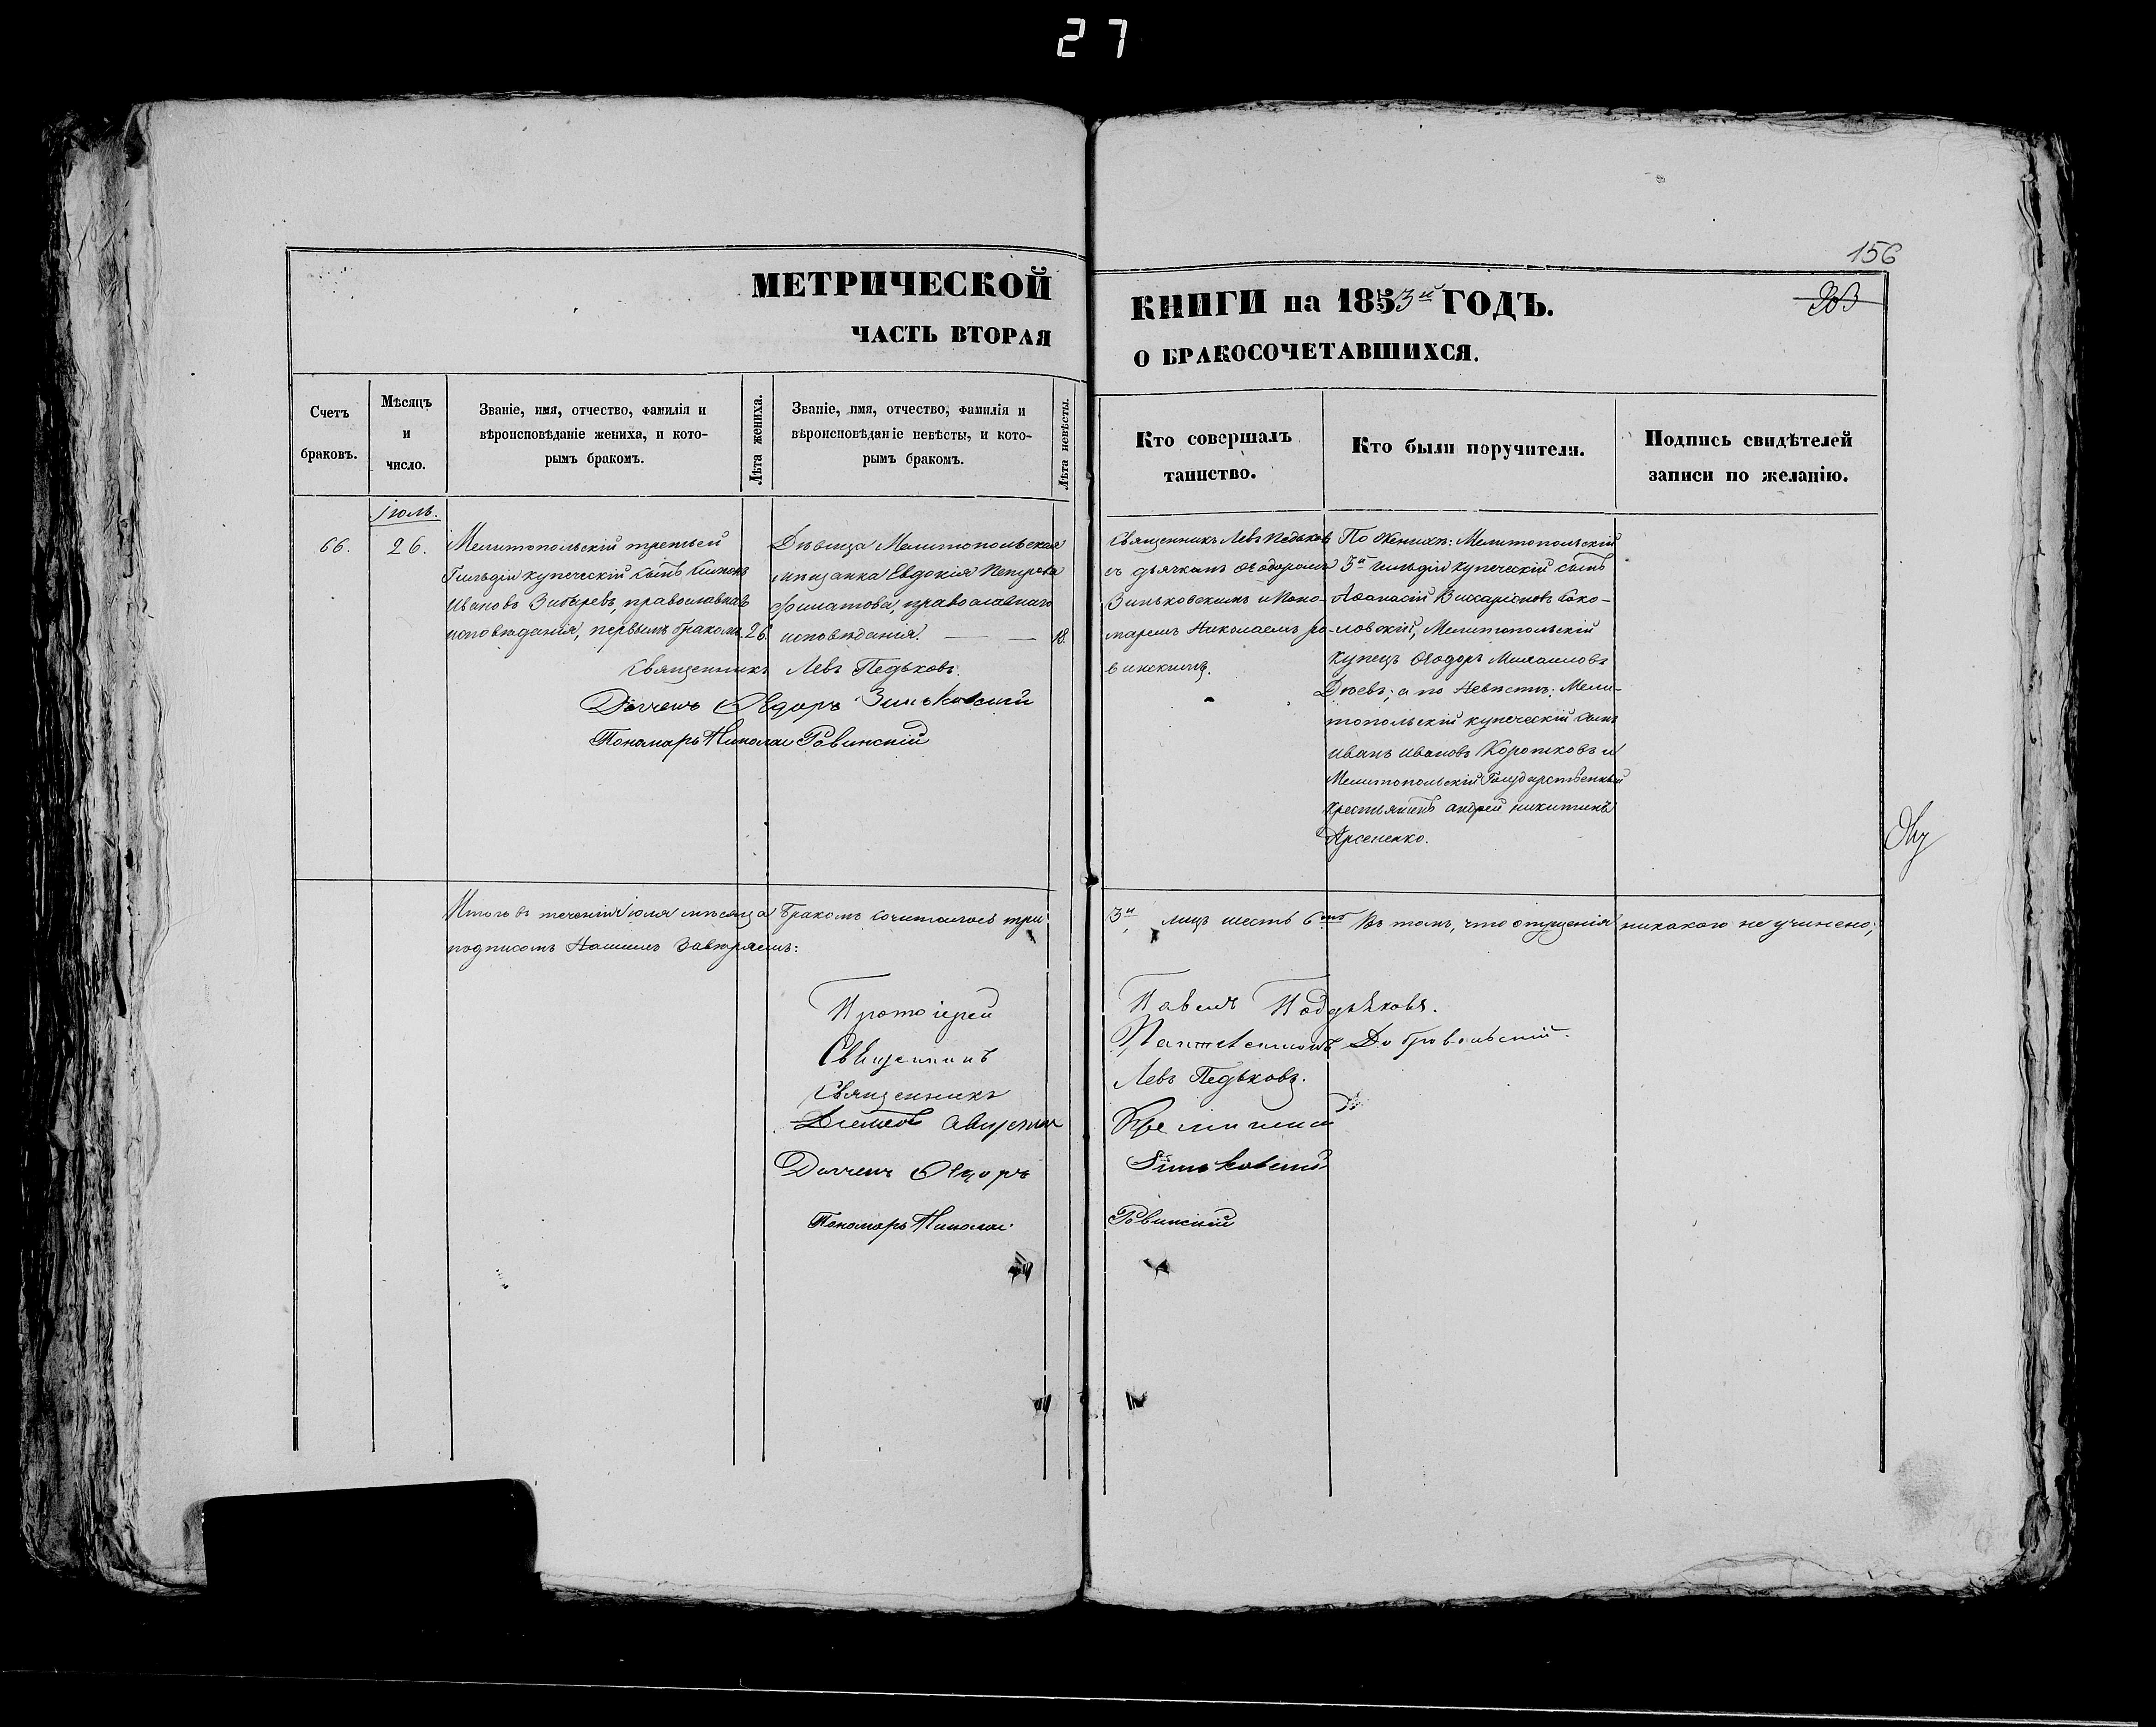 27
156
МЕТРИЧЕСКОЙ
ЧАСТЬ ВТОРАЯ
КНИГИ на 1853й ГОДЪ.
О БРАКОСОЧЕТАВШИХСЯ.
Счетъ браковъ.
Мѣсяцъ и число.
Званіе, имя, отчество, фамилія и
вѣроисповѣданіе жениха, и кото-
рымъ бракомъ.
Лѣта жениха.
Званіе, имя, отчество, фамилія и
вѣроисповѣданіе невѣсты, и кото-
рымъ бракомъ.
Лѣта невѣсты.
Кто совершалъ
таинство.
Кто были поручители.
Подпись свидѣтелей
записи по желанію.
Іюль.
66.
26.
Мелитопольскій третьей
Гильдіи купеческій сынъ Симонъ
Ивановъ, православнаго
исповѣданія, первымъ бракомъ.
26.
Дѣвица Мелитопольская
мѣщанка Евдокія Петрова
Филатова, православнаго
исповѣданія.
18.
Священникъ Левъ Педьковъ
съ дьячкомъ Ѳеодоромъ
Зиньковскимъ и Поно-
маремъ Николаемъ Ро-
винскимъ.
По Женихѣ: Мелитопольскій
3й гильдіи купеческій сынъ
Аѳанасій Виссаріоновъ Соко-
ловскій, Мелитопольскій
Купецъ Ѳеодоръ Михаиловъ
а по Невѣстѣ: Мели-
топольскій купеческій сынъ
Иванъ Ивановъ Коротковъ и
Мелитопольскій Государственный
крестьянинъ Андрей Никитинъ
Арсененко.
Священникъ Левъ Педьковъ.
Дьячекъ Ѳеодоръ Зиньковскій
Пономарь Николай Ровинскій
Итого въ теченіи Іюля мѣсяца бракомъ сочеталось три
3и, лицъ шесть 6ть. Въ томъ, что опущенія никакого не учинено;
подписомъ Нашимъ Завѣряемъ:
Протоіерей Павелъ Поддьяковъ.
Священникъ Пантелеимонъ Добровольскій.
Священникъ Левъ Педьковъ.
Дьячекъ Ѳеодоръ Зиньковскій
Пономарь Николай Ровинскій